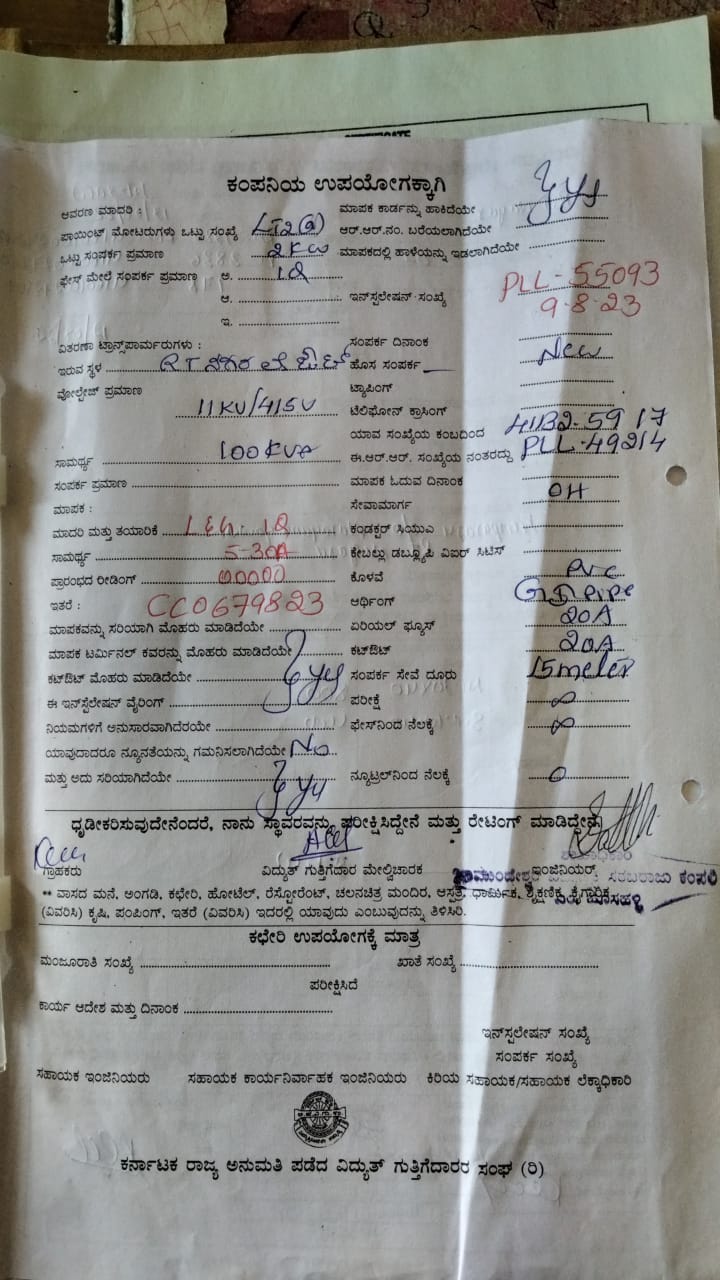 CERTIFICATE
ಕಂಪನಿಯ ಉಪಯೋಗಕ್ಕಾಗಿ
ಆವರಣ ಮಾದರಿ : ಮಾಪಕ ಕಾರ್ಡನ್ನು ಹಾಕಿದೆಯೇ
ಪಾಯಿಂಟ್ ಮೋಟರುಗಳು ಒಟ್ಟು ಸಂಖ್ಯೆ LT2(a) ಆರ್.ಆರ್.ನಂ. ಬರೆಯಲಾಗಿದೆಯೇ
ಒಟ್ಟು ಸಂಪರ್ಕ ಪ್ರಮಾಣ 2KW ಮಾಪಕದಲ್ಲಿ ಹಾಳೆಯನ್ನು ಇಡಲಾಗಿದೆಯೇ
ಫೇಸ್ ಮೇಲೆ ಸಂಪರ್ಕ ಪ್ರಮಾಣ ಅ.
ಆ. ಇನ್‌ಸ್ಟಲೇಷನ್ ಸಂಖ್ಯೆ PLL-55093
9-8-23
ಇ.
ವಿತರಣಾ ಟ್ರಾನ್ಸ್‌ಪಾರ್ಮರುಗಳು : ಸಂಪರ್ಕ ದಿನಾಂಕ
ಇರುವ ಸ್ಥಳ RT ನಗರ ಹೊಸ ಸಂಪರ್ಕ New
ವೋಲ್ಟೇಜ್ ಪ್ರಮಾಣ ಟ್ಯಾಪಿಂಗ್
11KV/415V ಟೆಲಿಫೋನ್ ಕ್ರಾಸಿಂಗ್
ಯಾವ ಸಂಖ್ಯೆಯ ಕಂಬದಿಂದ
ಸಾಮರ್ಥ್ಯ 100KVA ಈ.ಆರ್.ಆರ್. ಸಂಖ್ಯೆಯ ನಂತರದ್ದು PLL-49214
ಸಂಪರ್ಕ ಪ್ರಮಾಣ ಮಾಪಕ ಓದುವ ದಿನಾಂಕ
ಮಾಪಕ : ಸೇವಾಮಾರ್ಗ OH
ಮಾದರಿ ಮತ್ತು ತಯಾರಿಕೆ ಕಂಡಕ್ಟರ್ ಸಿಯುಎ
ಸಾಮರ್ಥ್ಯ 5-30A ಕೇಬಲ್ಲು ಡಬ್ಲ್ಯೂಪಿ ವಿಐರ್ ಸಿಟಿಸ್
ಪ್ರಾರಂಭದ ರೀಡಿಂಗ್ 00000 ಕೊಳವೆ PVC
ಇತರೆ : CC0679823 ಆರ್ಥಿಂಗ್ GI Pipe
ಮಾಪಕವನ್ನು ಸರಿಯಾಗಿ ಮೊಹರು ಮಾಡಿದೆಯೇ ಏರಿಯಲ್ ಫ್ಯೂಸ್ 20A
ಮಾಪಕ ಟರ್ಮಿನಲ್ ಕವರನ್ನು ಮೊಹರು ಮಾಡಿದೆಯೇ ಕಟ್‌ಔಟ್ 20A
ಕಟ್‌ಔಟ್ ಮೊಹರು ಮಾಡಿದೆಯೇ ಸಂಪರ್ಕ ಸೇವೆ ದೂರು 15 meter
ಈ ಇನ್‌ಸ್ಟೆಲೇಷನ್ ವೈರಿಂಗ್ ಪರೀಕ್ಷೆ ∞
ನಿಯಮಗಳಿಗೆ ಅನುಸಾರವಾಗಿದೆರಯೇ ಫೇಸ್‌ನಿಂದ ನೆಲಕ್ಕೆ ∞
ಯಾವುದಾದರೂ ನ್ಯೂನತೆಯನ್ನು ಗಮನಿಸಲಾಗಿದೆಯೇ No
ಮತ್ತು ಅದು ಸರಿಯಾಗಿದೆಯೇ ನ್ಯೂಟ್ರಲ್‌ನಿಂದ ನೆಲಕ್ಕೆ 0
ಧೃಡೀಕರಿಸುವುದೇನೆಂದರೆ, ನಾನು ಸ್ಥಾವರವನ್ನು ಪರೀಕ್ಷಿಸಿದ್ದೇನೆ ಮತ್ತು ರೇಟಿಂಗ್ ಮಾಡಿದ್ದೇನೆ
ಗ್ರಾಹಕರು ವಿದ್ಯುತ್ ಗುತ್ತಿಗೆದಾರ ಮೇಲ್ವಿಚಾರಕ ಇಂಜಿನಿಯರ್
** ವಾಸದ ಮನೆ, ಅಂಗಡಿ, ಕಛೇರಿ, ಹೋಟೆಲ್, ರೆಸ್ಟೋರೆಂಟ್, ಚಲನಚಿತ್ರ ಮಂದಿರ, ಆಸ್ಪತ್ರೆ, ಧಾರ್ಮಿಕ, ಶೈಕ್ಷಣಿಕ, ಕೈಗಾರಿಕಾ
(ವಿವರಿಸಿ) ಕೃಷಿ, ಪಂಪಿಂಗ್, ಇತರೆ (ವಿವರಿಸಿ) ಇದರಲ್ಲಿ ಯಾವುದು ಎಂಬುವುದನ್ನು ತಿಳಿಸಿರಿ.
ಕಛೇರಿ ಉಪಯೋಗಕ್ಕೆ ಮಾತ್ರ
ಮಂಜೂರಾತಿ ಸಂಖ್ಯೆ ಖಾತೆ ಸಂಖ್ಯೆ
ಪರೀಕ್ಷಿಸಿದೆ
ಕಾರ್ಯ ಆದೇಶ ಮತ್ತು ದಿನಾಂಕ
ಇನ್‌ಸ್ಪಲೇಷನ್ ಸಂಖ್ಯೆ
ಸಂಪರ್ಕ ಸಂಖ್ಯೆ
ಸಹಾಯಕ ಇಂಜಿನಿಯರು ಸಹಾಯಕ ಕಾರ್ಯನಿರ್ವಾಹಕ ಇಂಜಿನಿಯರು ಕಿರಿಯ ಸಹಾಯಕ/ಸಹಾಯಕ ಲೆಕ್ಕಾಧಿಕಾರಿ
ಕರ್ನಾಟಕ ರಾಜ್ಯ ಅನುಮತಿ ಪಡೆದ ವಿದ್ಯುತ್ ಗುತ್ತಿಗೆದಾರರ ಸಂಘ (ರಿ)